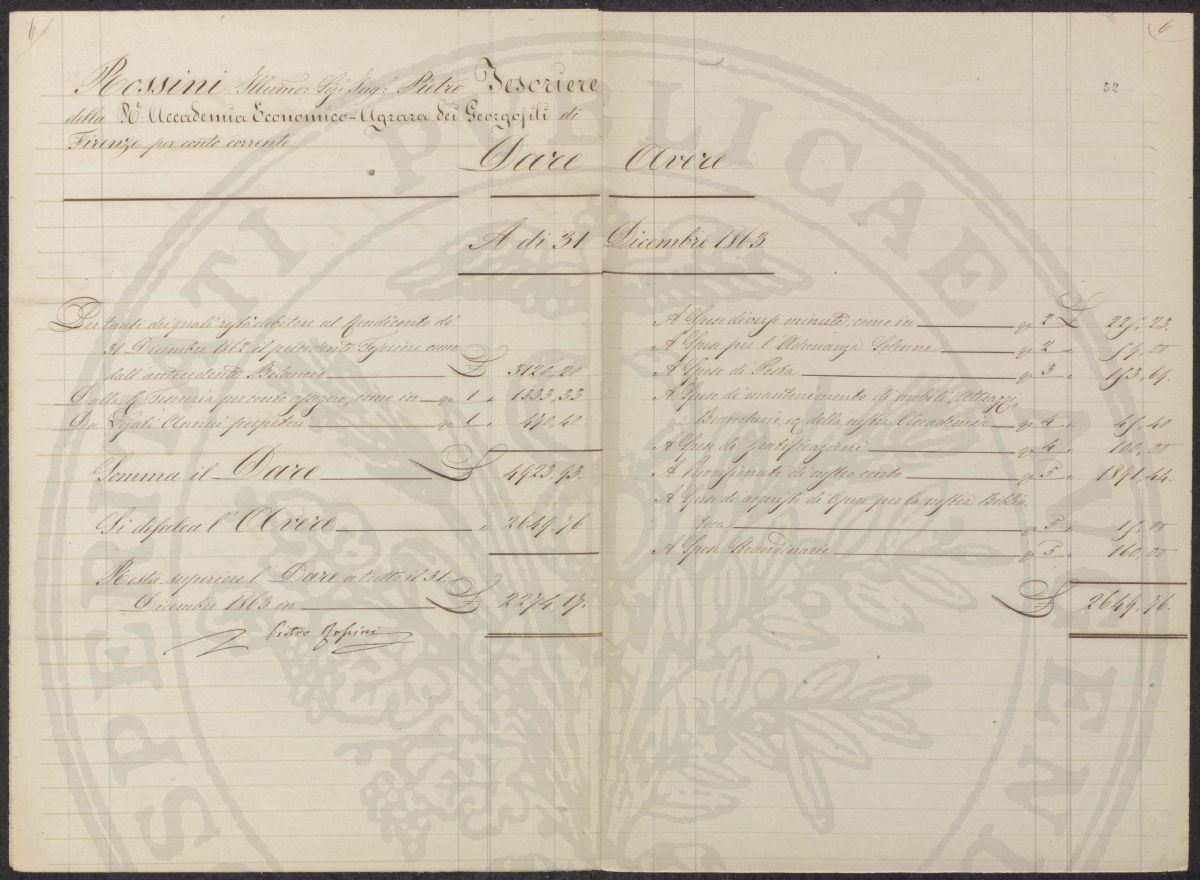 6
6
52
Rossini Illumo: Sigr. Ingr. Pietro Tesoriere
della Rl. Accademia Economico-Agraria dei Georgofili di
Firenze per conto corrente
Dare Avere
A dì 31 Dicembre 1863
Per tanti dei quali restò debitore al Rendiconto di
31 Dicembre 1862 il precedente Tesoriere come
dall'antecedente Bilancio £ 3120,20
Dalla Tesoria per conto come in 1 " 1333,33
Da Legati Annui perpetui 1 " 470,40
Somma il Dare £ 4923,93.
Si defalca l'Avere " 2649,76
Resta superiore l'Dare a tutto il 31
Dicembre 1863 in £ 2274,17.
Pietro Rossini
A Spese diverse minute, come in 2 £ 225,23.
A Spese per l'Adunanza Solenne 2 " 59,00
A Spese di Posta 3 " 153,69.
A Spese di mantenimento di mobili, Attrezzi,
Biancheria, della nostra Accademia 4 " 45,40
A Spese di Gratificazioni 4 " 100,00
A Provvisionati di nostro conto 5 " 1891,44.
A Spese di acquisto di Opere per la nostra Biblio
teca 5 " 15,00
A Spese Straordinarie 5 " 160,00
£ 2649,76.
SPERITATI PUBLICAE